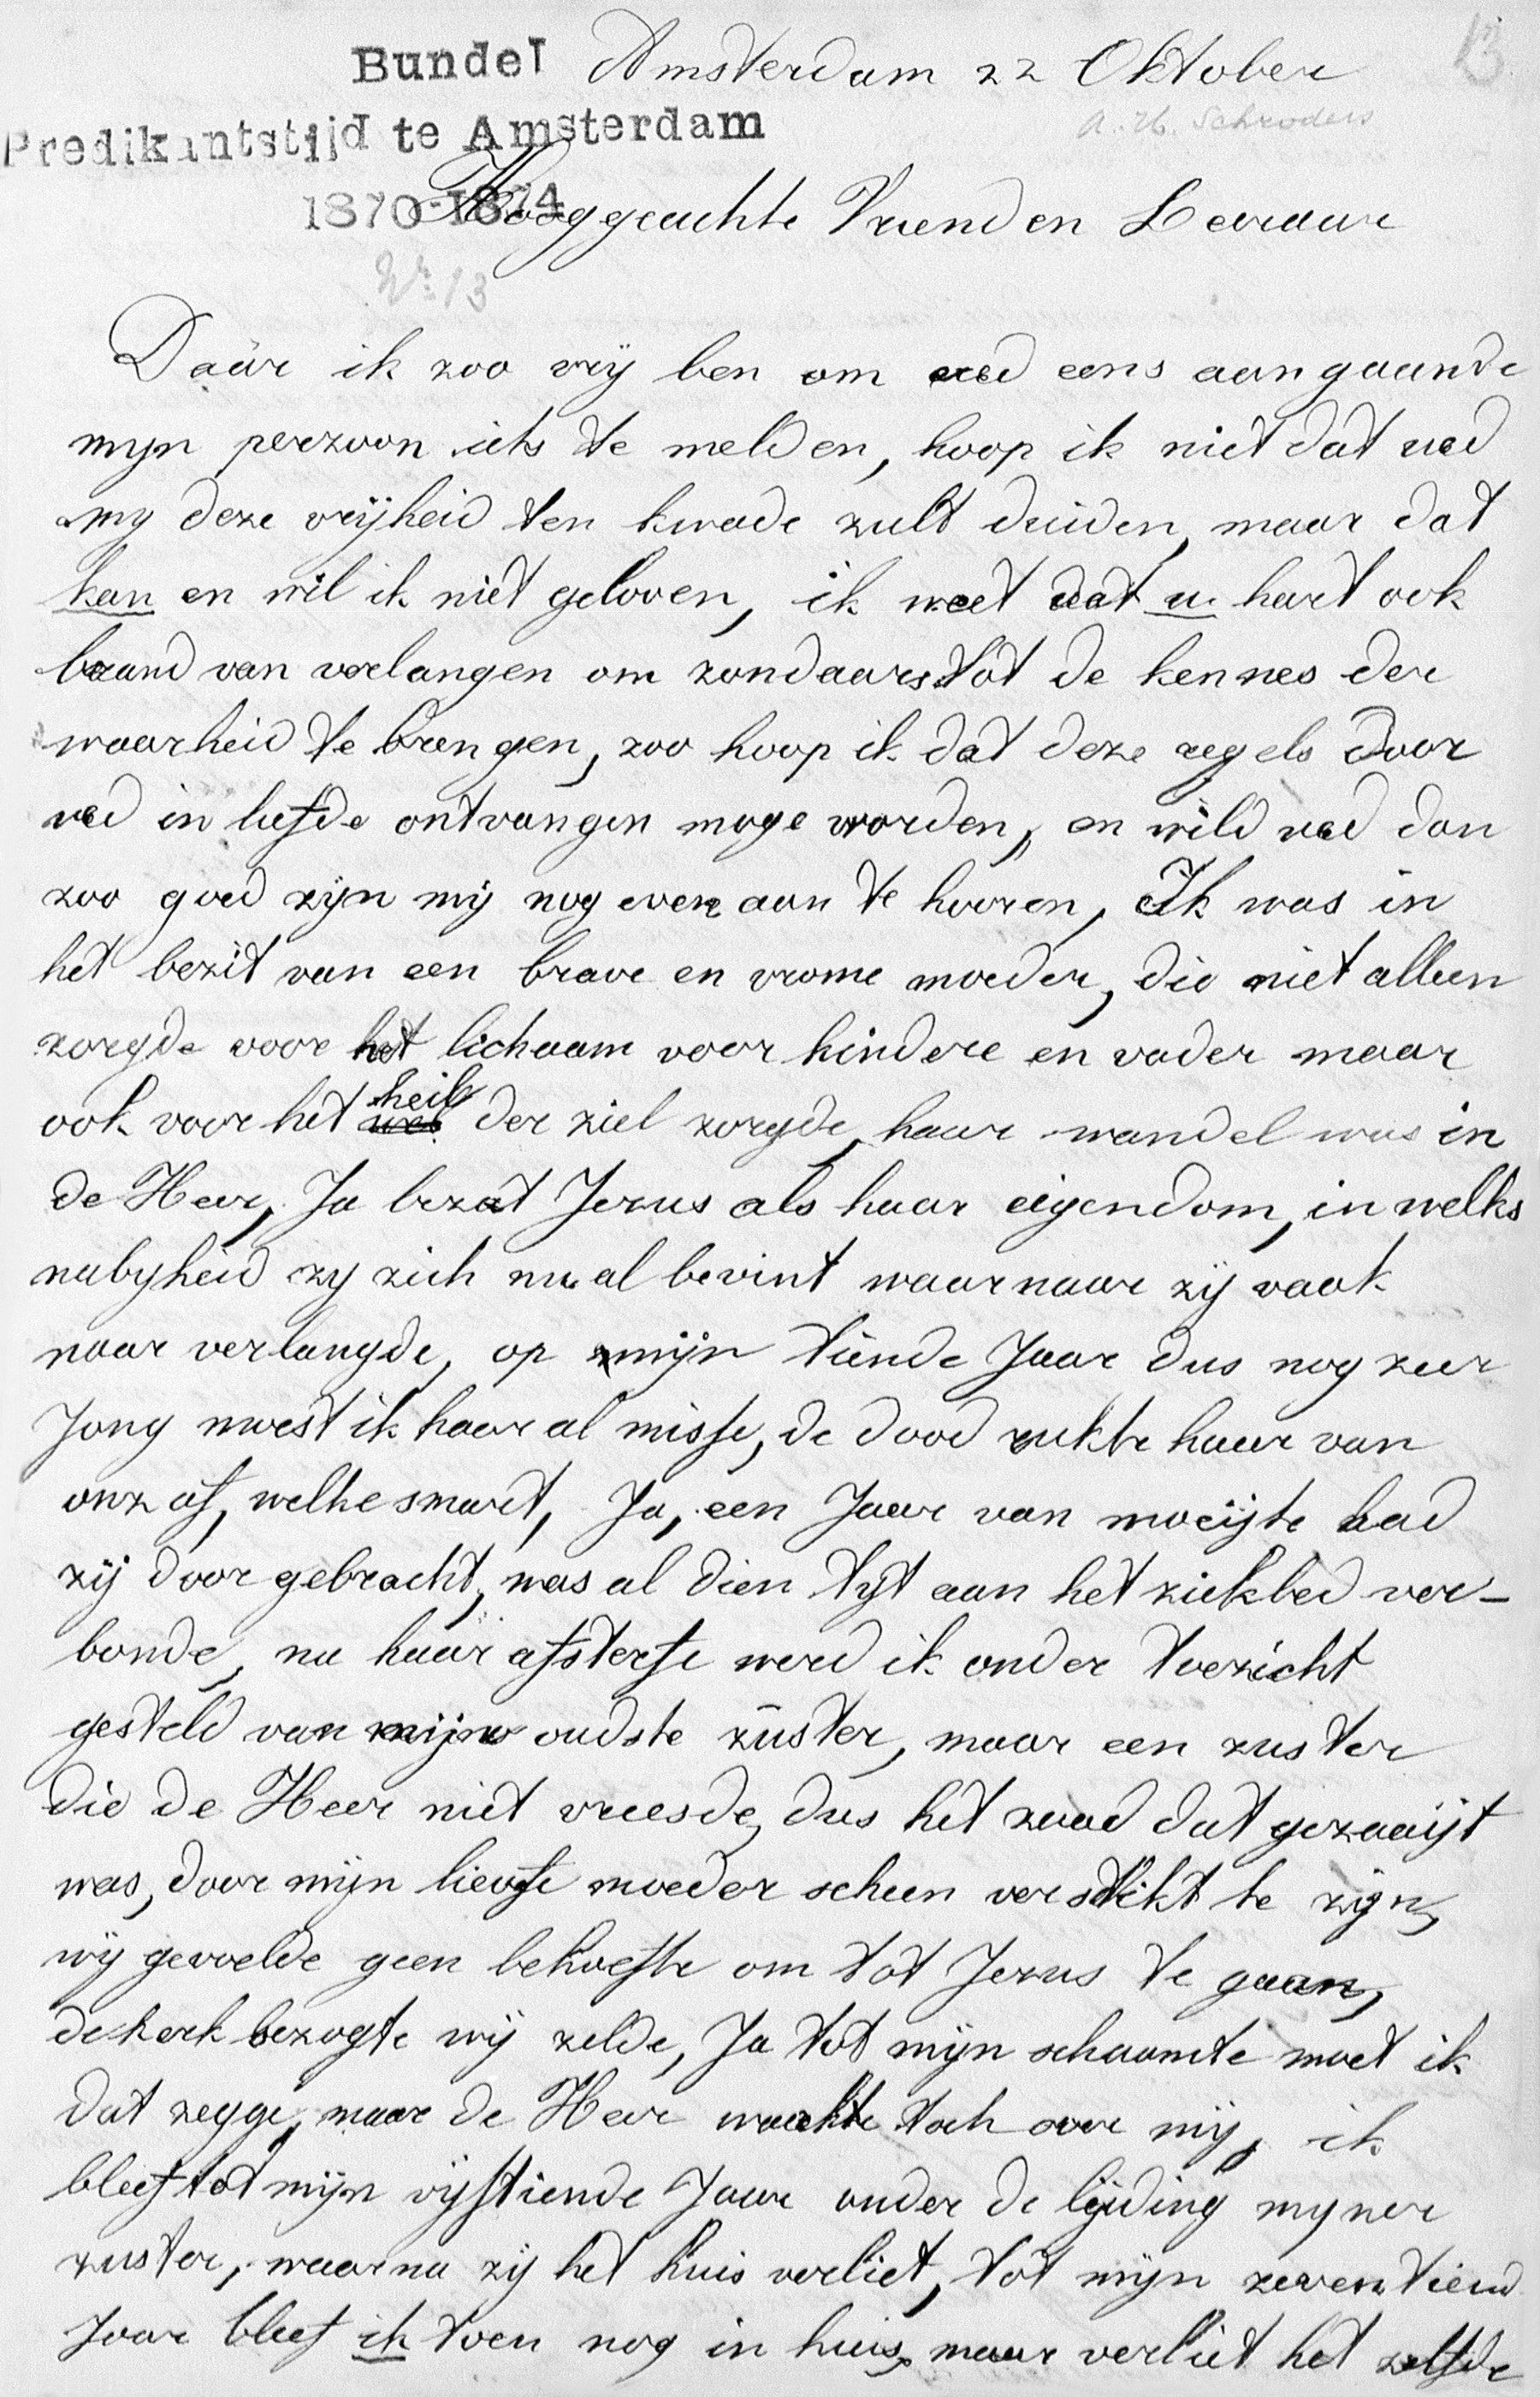 Bundel Amsterdam 22 Oktober
13
A. H. Schroders
Predikantstijd te Amsterdam
1870-1874
Hooggeachte Vriend en Leeraar
Nr. 13
Daar ik zoo vrij ben om ued eens aangaande
mijn perzoon iets te melden, hoop ik niet dat ued
my deze vrijheid ten kwade zult duiden, maar dat
kan en wil ik niet geloven, ik weet dat u hart ook
brand van verlangen om zondaars tot de kennes der
waarheid te brengen, zoo hoop ik dat deze regels door
ued in liefde ontvangen moge worden, en wild ued dan
zoo goed zijn mij nog even aan te hooren, Ik was in
het bezit van een brave en vrome moeder, die niet alleen
zorgde voor het lichaam voor kindere en vader maar
ook voor het wel heil der ziel zorgde, haar wandel was in
de Heer, Ja bezat Jezus als haar eigendom, in welks
nabyheid zy zich nu al bevint waarnaar zij vaak
naar verlangde, op mijn tiende Jaar dus nog zeer
Jong moest ik haar al misse, de dood rukte haar van
onz af, welke smart, Ja, een Jaar van moeijte had
zij door gebracht, was al dien tyt aan het ziekbed ver-
bonde, na haar afsterfe werd ik onder toezicht
gesteld van mijne oudste zuster, maar een zuster
die de Heer niet vreesde, dus het zaad dat gezaaijt
was, door mijn lievfe moeder scheen verstikt te zijn,
wij gevoelde geen behoefte om tot Jezus te gaan,
de kerk bezogte wij zelde, Ja tot mijn schaamte moet ik
dat zegge, maar de Heer waakte toch over mij, ik
bleef tot mijn vijftiende Jaar onder de lijding myner
zuster, waarna zij het huis verliet, tot mijn zeventiend
Jaar bleef ik toen nog in huis, maar verliet het zelfde